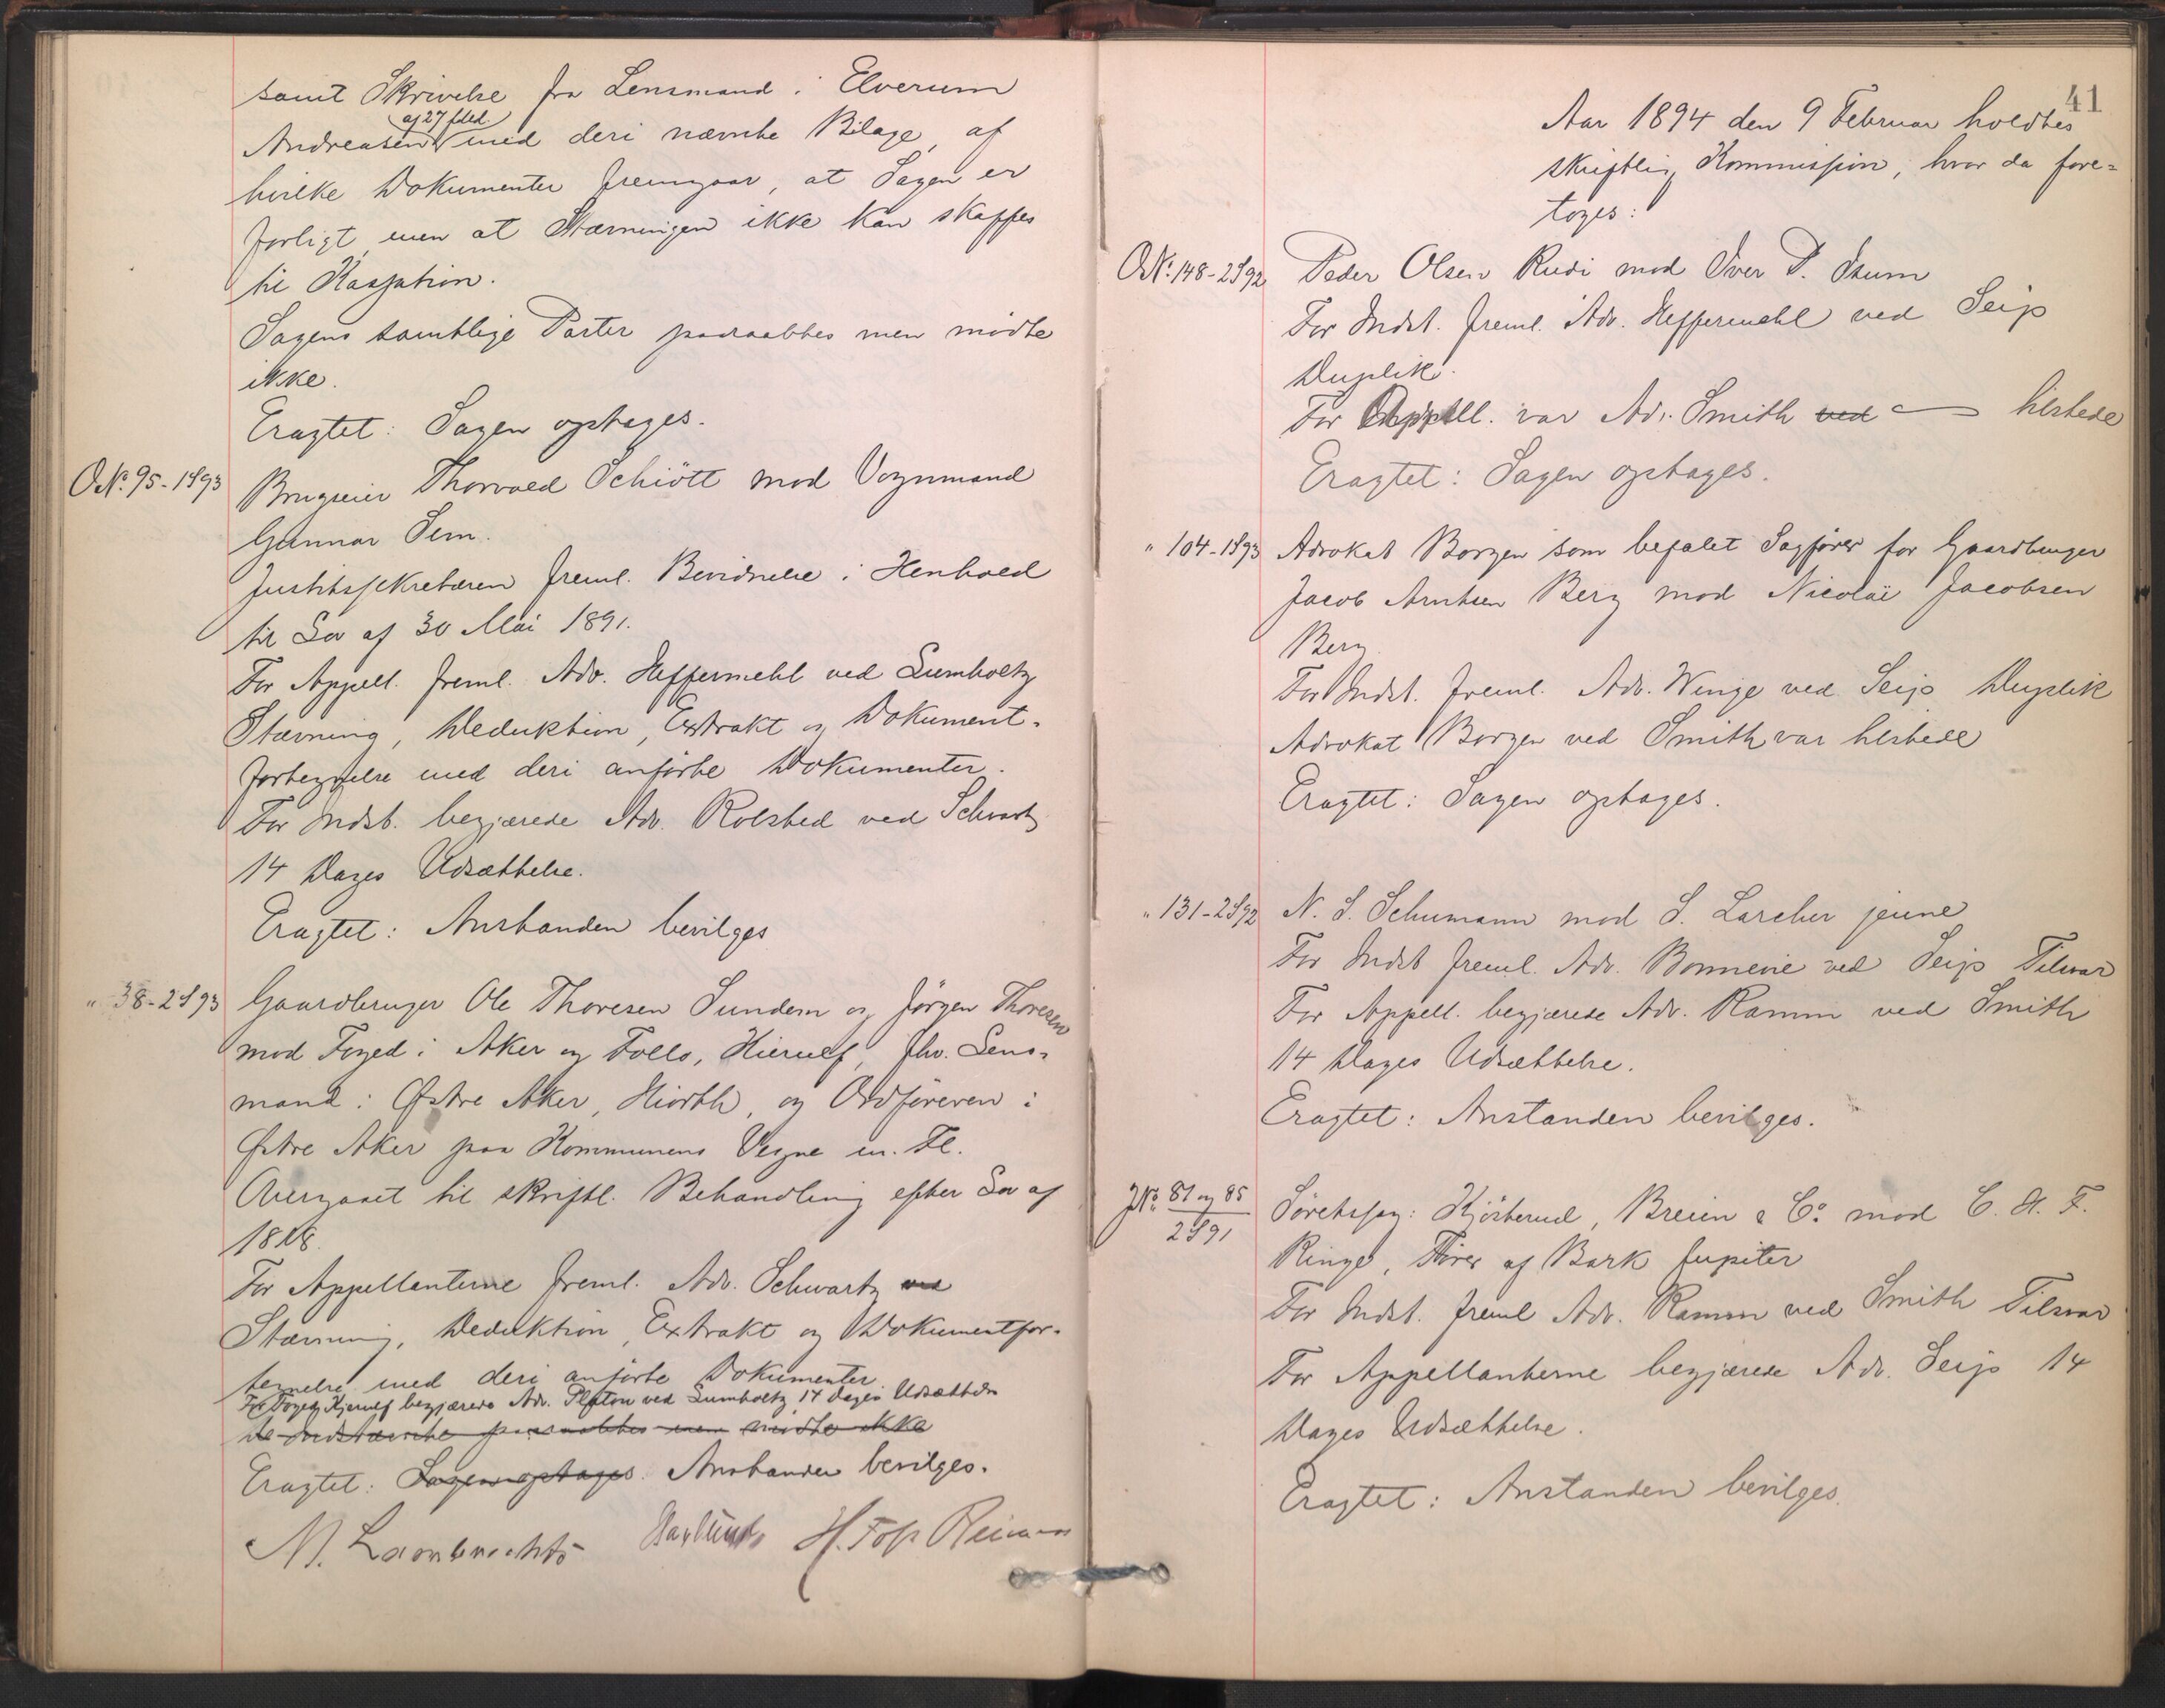 samt Skrivelse fra Lensmand i Elverum
af 27 f. Md.
Andreasen med deri nævnte Bilage, af
hvilke Dokumenter fremgaar, at Sagen er
forligt, men at Stævningen ikke kan skaffes
til Kassation.
Sagens samtlige Parter paaraabtes men mødte
ikke.
Eragtet: Sagen optages.
O.№ 95-1S93
Brugseier Thorvald Schiött mod Vognmand
Gunnar Sem.
Justitssekretæren freml. Bevidnelse i Henhold
til Lov af 30 Mai 1891.
For Appell. freml. Adv. Heffermehl ved Lumholtz
Stævning, Deduktion, Extrakt og Dokument-
fortegnelse med deri anførte Dokumenter.
For Indst. begjærede Adv. Rolsted ved Schwartz
14 Dages Udsættelse.
Eragtet: Anstanden bevilges
" 38-2S93
Gaardbruger Ole Thoresen Sundem og Jørgen Thoresen
mod Foged i Aker og Follo, Hierulf, fhv. Lens-
mand i Østre Aker, Hiorth, og Ordføreren i
Østre Aker paa Kommunens Vegne m. Fl.
Overgaaet til skriftl. Behandling efter Lov af
1818.
For Appellanterne freml. Adv. Schwartz ved
Stævning, Deduktion, Extrakt og Dokumentfor-
tegnelse med deri anførte Dokumenter
For Foged Hjerulf begjærede Adv. Platou ved Lumholtz 14 Dages Udsættelse
De Indstævnte paaraabtes men mødte ikke
Eragtet: Sagen optages. Anstanden bevilges.
M. Lambrechts H. Foss Reimers
41
Aar 1894 den 9 Februar holdtes
skriftlig Kommission, hvor da fore-
toges:
O№ 148-2S92
Peder Olsen Rudi mod Iver P. Isum
For Indst. freml. Adv. Heffermehl ved Seip
Duplik.
For Appell. var Adv. Smith ved — tilstede
Eragtet: Sagen optages.
" 104-1S93
Advokat Borgen som befalet Sagfører for Gaardbruger
Jacob Arntsen Berg mod Nicolai Jacobsen
Berg
For Indst. freml. Adv. Winge ved Seip Duplik
Advokat Borgen ved Smith var tilstede
Eragtet: Sagen optages.
" 131-2S92
N. S. Schumann mod S. Larcher jeune
For Indst freml. Adv. Bonnevie ved Seip Tilsvar
For Appell. begjærede Adv. Ramm ved Smith
14 Dages Udsættelse.
Eragtet: Anstanden bevilges.
J№ 81 og 85
2S91
Søretssag: Kjøsterud, Breien & Co mod C. H. F.
Ringe, Fører af Bark Jupiter
For Indst. freml Adv. Ramm ved Smith Tilsvar
For Appellanterne begjærede Adv. Seip 14
Dages Udsættelse.
Eragtet: Anstanden bevilges.